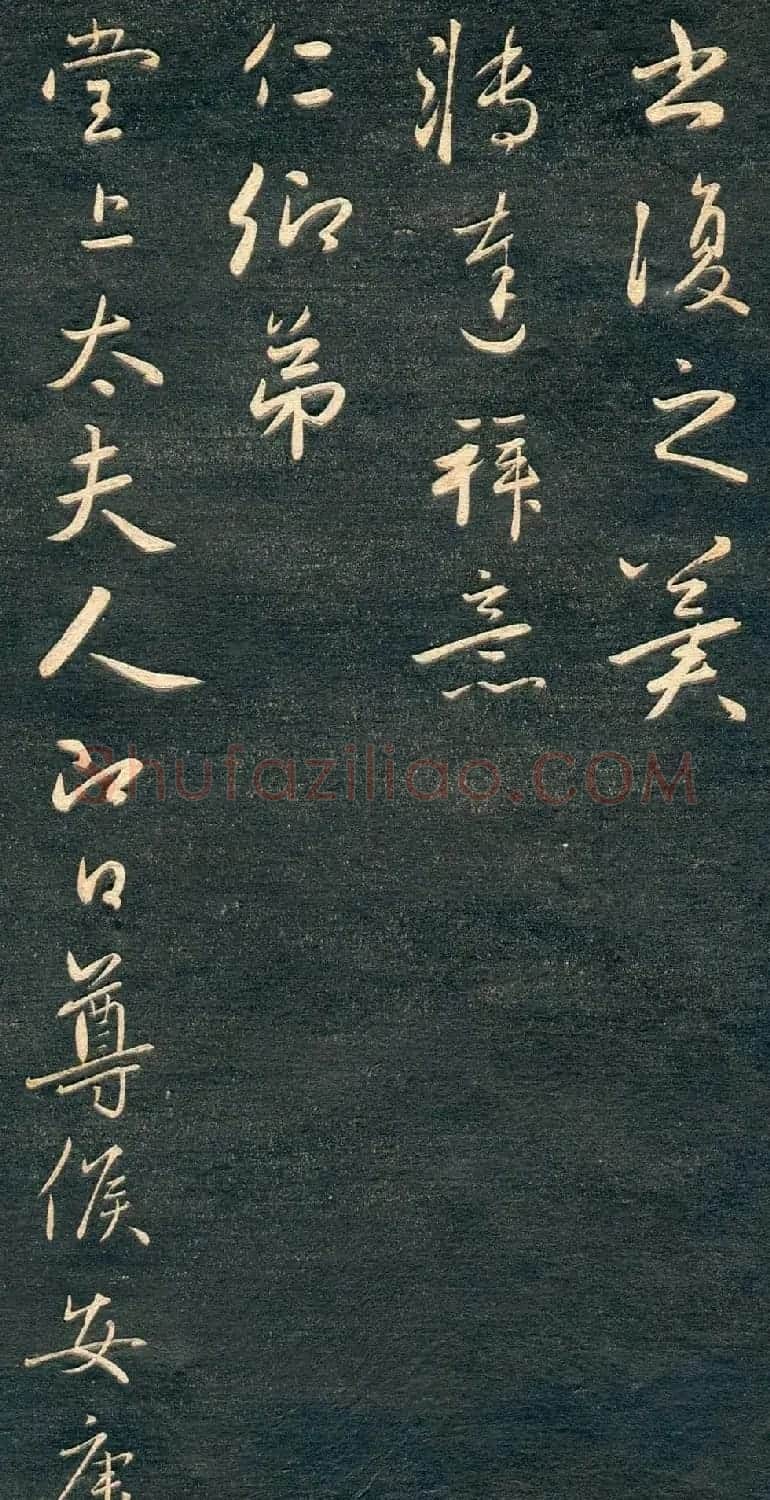 復之
達祥意
仁卿弟
堂上太夫人即日尊候安康
Shufaziliao.COM